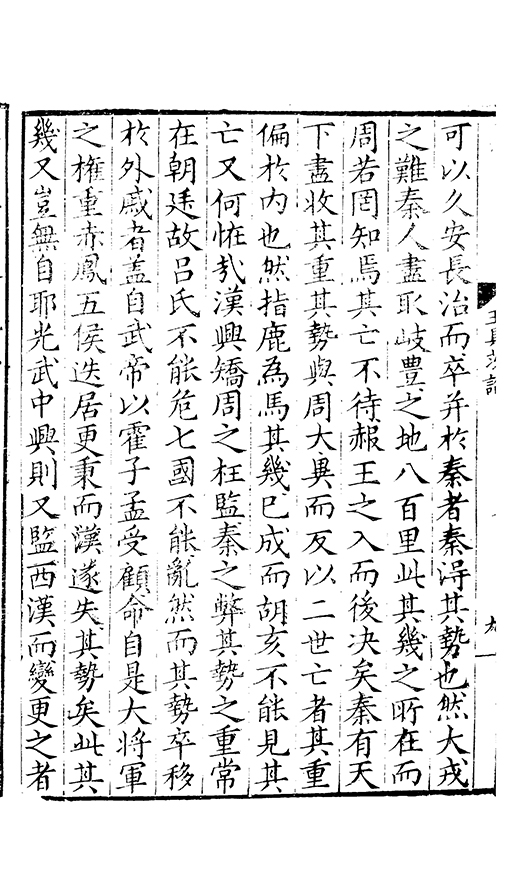 可以久安長治而卒并於秦者秦淂其勢也然大戎
之難秦人盡取岐豊之地八百里此其幾之所在而
周若罔知焉其亡不待赧王之入而後决矣秦有天
下盡收其重其勢與周大異而反以二世亡者其重
偏於内也然指鹿為馬其幾已成而胡亥不能見其
亡又何恠哉漢興矯周之枉監秦之弊其勢之重常
在朝廷故吕氏不能危七國不能亂然而其勢卒移
於外戚者盖自武帝以霍子孟受顧命自是大將軍
之權重赤鳳五侯迭居更秉而漢遂失其勢矣此其
幾又豈無自耶光武中興則又監西漢而變更之者
九